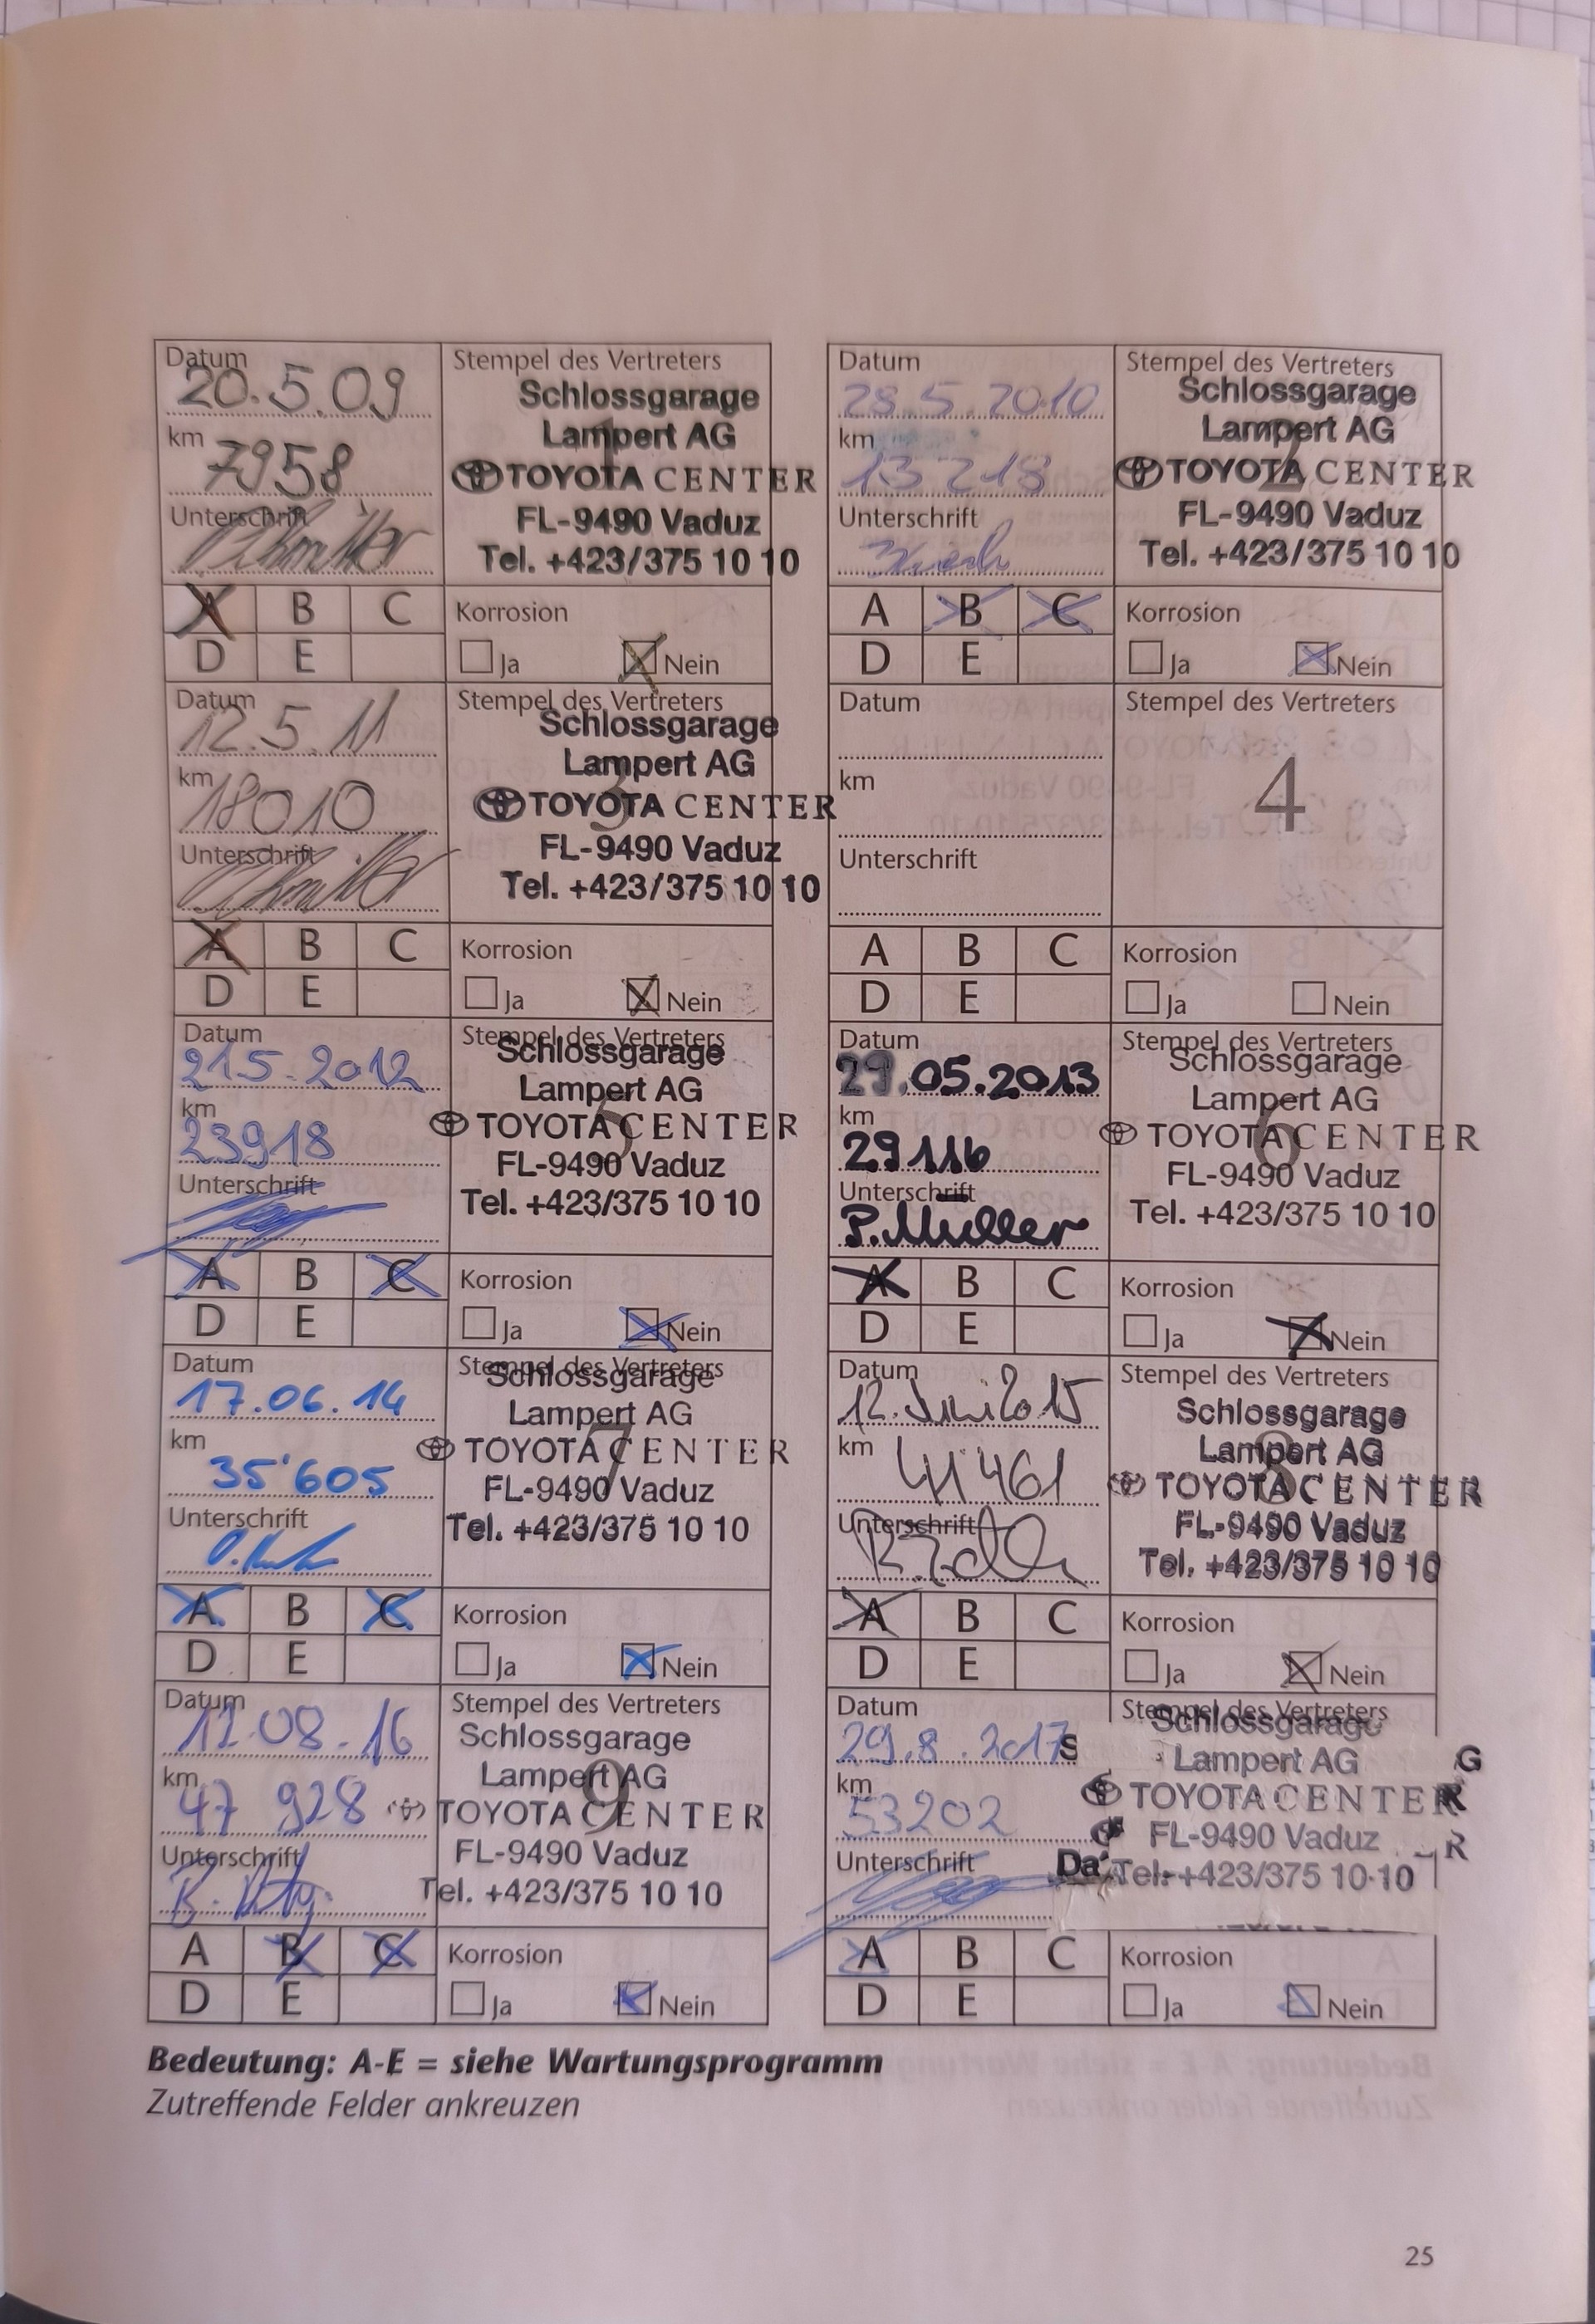 Datum
20.5.09
km 7958
Unterschrift
Stempel des Vertreters
1
Schlossgarage
Lampert AG
TOYOTA CENTER
FL-9490 Vaduz
Tel. +423/375 10 10
A B C
D E
Korrosion
Ja Nein
Datum
28.5.2010
km
13 218
Unterschrift
Stempel des Vertreters
2
Schlossgarage
Lampert AG
TOYOTA CENTER
FL-9490 Vaduz
Tel. +423/375 10 10
A B C
D E
Korrosion
Ja Nein
Datum
12.5.11
km 18010
Unterschrift
Stempel des Vertreters
3
Schlossgarage
Lampert AG
TOYOTA CENTER
FL-9490 Vaduz
Tel. +423/375 10 10
A B C
D E
Korrosion
Ja Nein
Datum
km
Unterschrift
Stempel des Vertreters
4
A B C
D E
Korrosion
Ja Nein
Datum
21.5.2012
km
23918
Unterschrift
Stempel des Vertreters
5
Schlossgarage
Lampert AG
TOYOTA CENTER
FL-9490 Vaduz
Tel. +423/375 10 10
A B C
D E
Korrosion
Ja Nein
Datum
29.05.2013
km
29116
Unterschrift
P. Müller
Stempel des Vertreters
6
Schlossgarage
Lampert AG
TOYOTA CENTER
FL-9490 Vaduz
Tel. +423/375 10 10
A B C
D E
Korrosion
Ja Nein
Datum
17.06.14
km
35'605
Unterschrift
Stempel des Vertreters
7
Schlossgarage
Lampert AG
TOYOTA CENTER
FL-9490 Vaduz
Tel. +423/375 10 10
A B C
D E
Korrosion
Ja Nein
Datum
12. Juni 2015
km 41'461
Unterschrift
Stempel des Vertreters
8
Schlossgarage
Lampert AG
TOYOTA CENTER
FL-9490 Vaduz
Tel. +423/375 10 10
A B C
D E
Korrosion
Ja Nein
Datum
11.08.16
km
47 928
Unterschrift
Stempel des Vertreters
9
Schlossgarage
Lampert AG
TOYOTA CENTER
FL-9490 Vaduz
Tel. +423/375 10 10
A B C
D E
Korrosion
Ja Nein
Datum
29.8.2017 S
km
53202
Unterschrift
Stempel des Vertreters
Schlossgarage
Lampert AG G
TOYOTA CENTER R
FL-9490 Vaduz R
Da Tel. +423/375 10 10
A B C
D E
Korrosion
Ja Nein
Bedeutung: A-E = siehe Wartungsprogramm
Zutreffende Felder ankreuzen
25